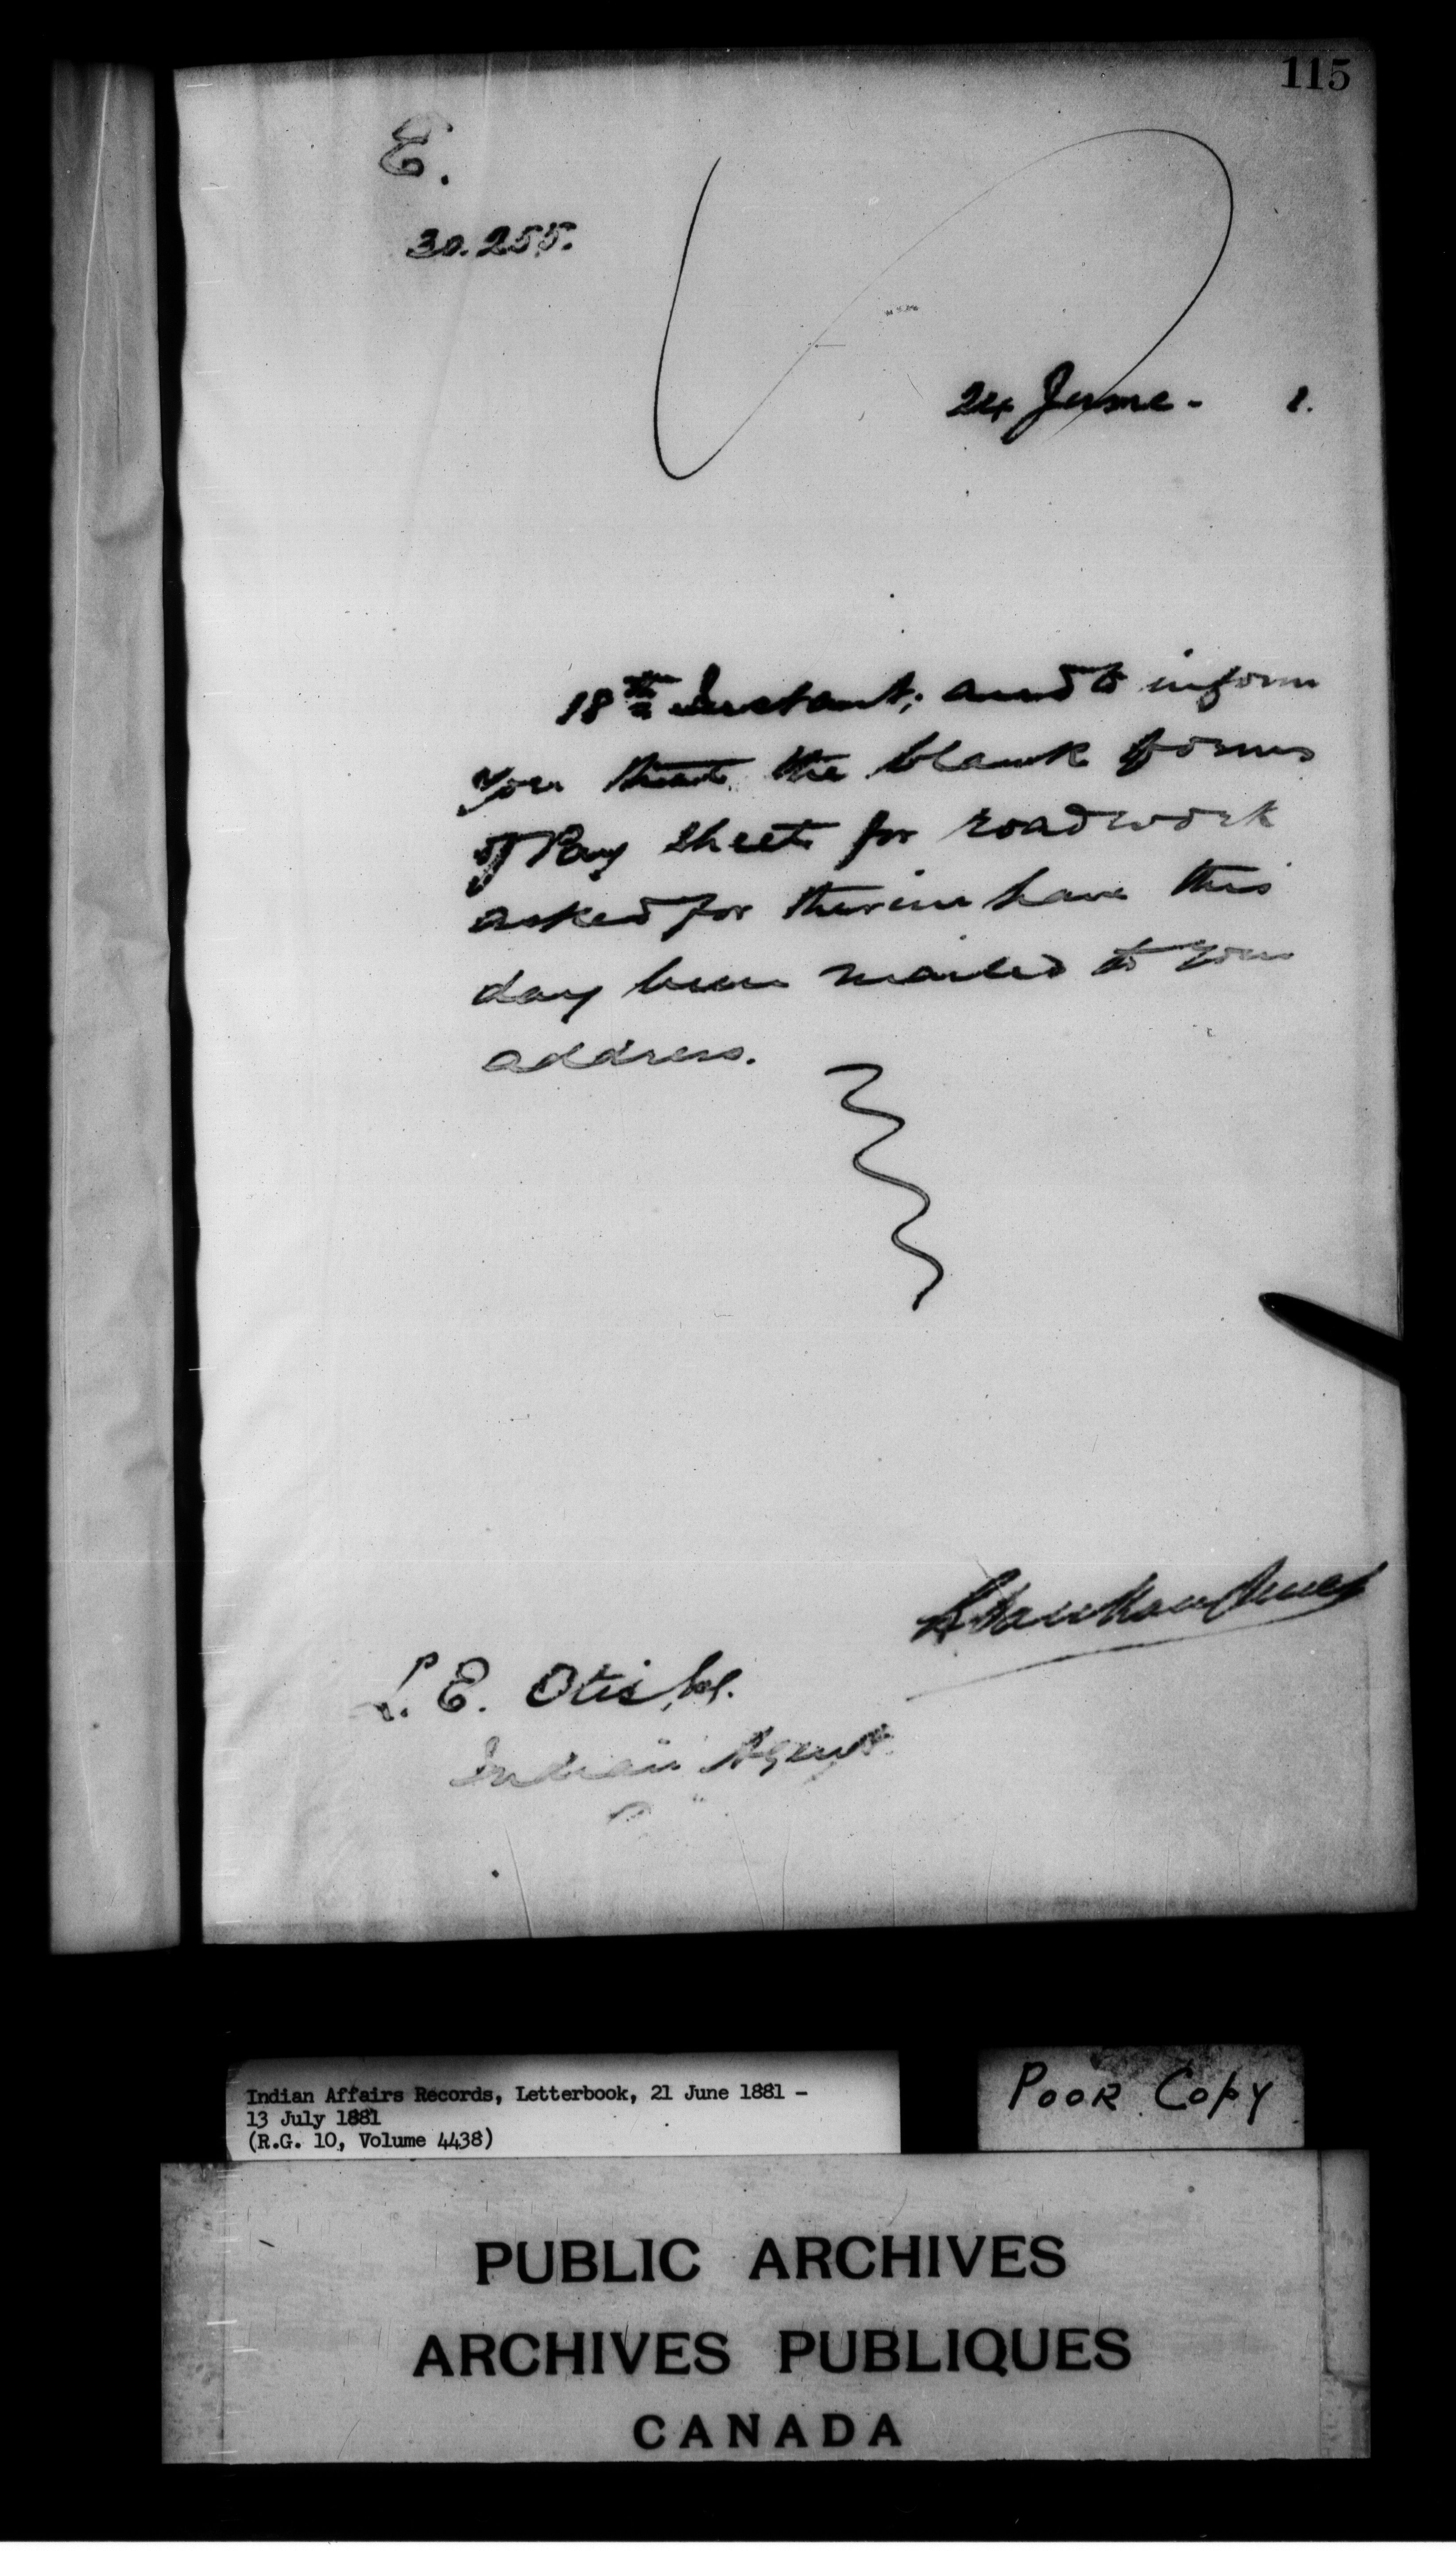 115
E.
30.255.
24 June - 1.
18th Instant, and to inform
you that the blank forms
of Pay Sheets for roadwork
asked for therein have this
day been mailed to your
address.
L. E. Otis, Esq.
Indian Agent
Indian Affairs Records, Letterbook, 21 June 1881 -
13 July 1881
(R.G. 10, Volume 4438)
POOR Copy
PUBLIC ARCHIVES
ARCHIVES PUBLIQUES
CANADA